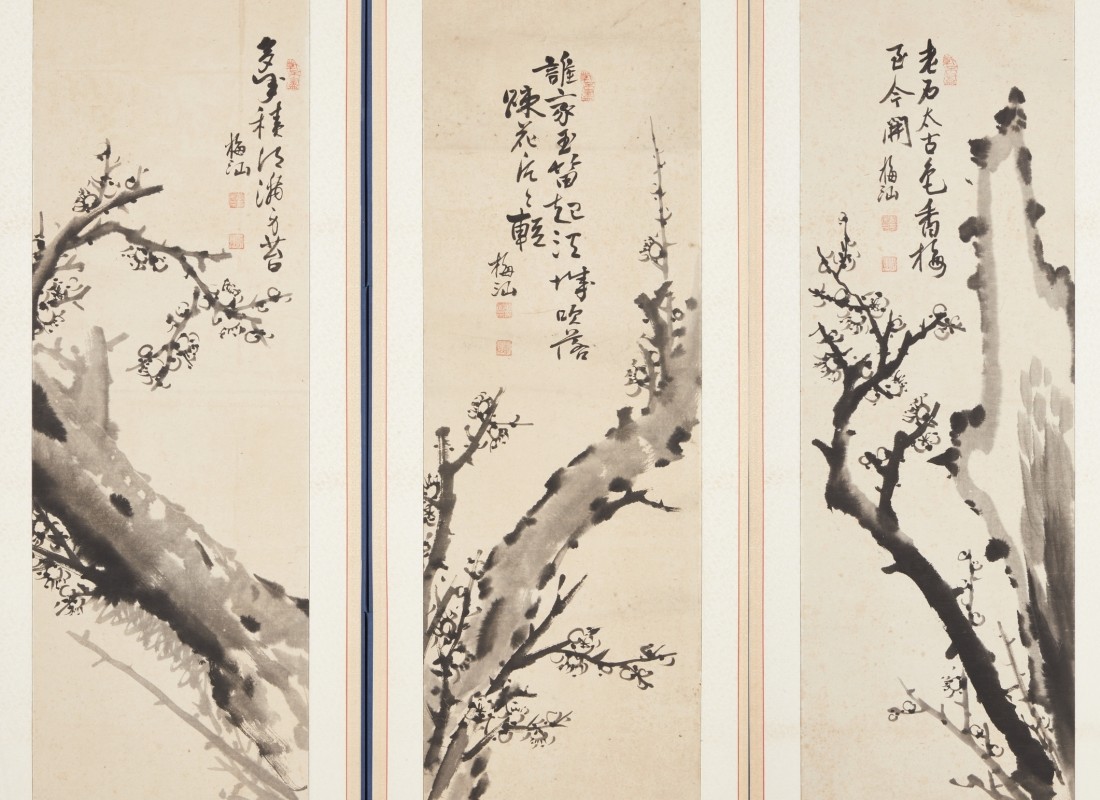 老石太古色香梅
至今開
梅汕
誰家玉笛起江城吹落
踈花片〻輕
梅汕
多積滿身苔
梅汕